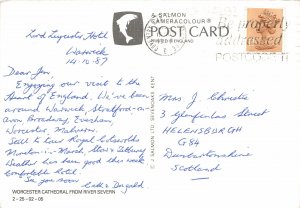 Lord Leycester Hotel
Warwick
14.10.87
Dear Jen,
Enjoying our visit to the
Heart of England. We've been
around Warwick, Stratford-on-
Avon, Broadway, Evesham,
Worcester, Malvern.
Still to tour Royal Cotswolds
Moreton-in-Marsh, Stow &
Weather has been good this week
Comfortable hotel.
See you soon
WORCESTER CATHEDRAL FROM RIVER SEVERN
2-25-92-05
A SALMON
CAMERACOLOUR®
POST CARD
PRINTED IN ENGLAND
© J SALMON LTD SEVENOAKS KENT
Be properly
addressed
POSTCODE IT
Mrs J Christie
HELENSBURGH
G84
Dunbartonshire
Scotland